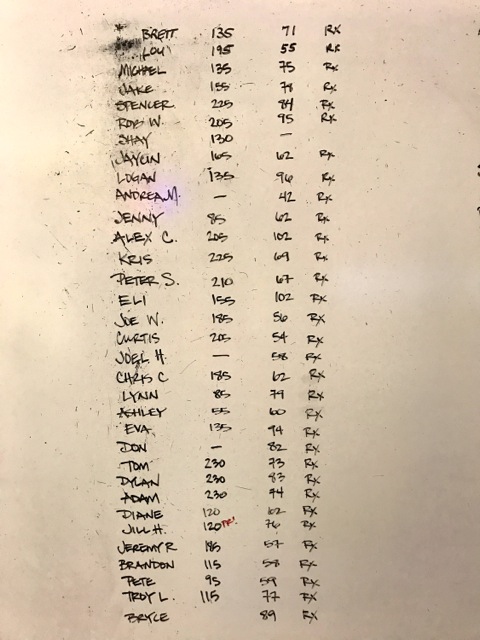 BRETT 135 71 Rx
LOU 195 55 Rx
MICHAEL 135 75 Rx
JAKE 155 78 Rx
SPENCER 225 84 Rx
ROB W. 205 95 Rx
SHAY 130 —
JAYLIN 165 62 Rx
LOGAN 135 96 Rx
ANDREA M. — 42 Rx
JENNY 85 62 Rx
ALEX C. 205 102 Rx
KRIS 225 69 Rx
PETER S. 210 67 Rx
ELI 155 102 Rx
JOE W. 185 56 Rx
CURTIS 205 54 Rx
JOEL H. — 58 Rx
CHRIS C 185 62 Rx
LYNN 85 79 Rx
ASHLEY 55 60 Rx
EVA 135 94 Rx
DON — 82 Rx
TOM 230 73 Rx
DYLAN 230 83 Rx
ADAM 230 94 Rx
DIANE 120 102 Rx
JILL H. 120 PR! 76 Rx
JEREMY R 185 57 Rx
BRANDON 115 58 Rx
PETE 95 59 Rx
TROY L. 115 77 Rx
BRYCE 89 Rx